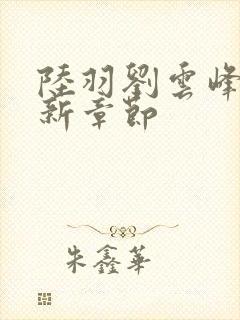 陸羽劉雲峰
新章節
朱鑫華